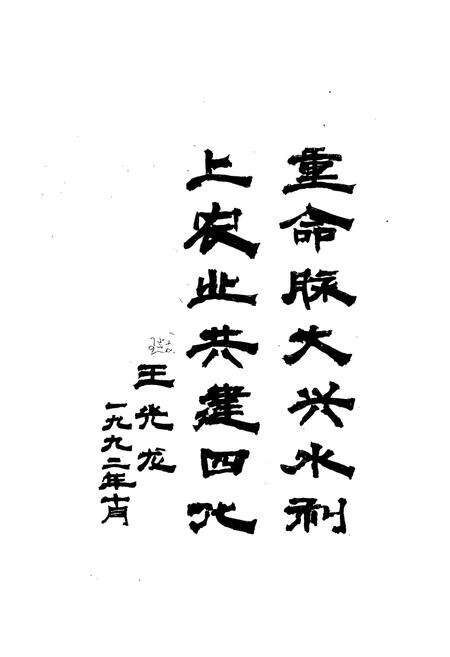 重命脉大兴水利
上农业共建四化
王光龙
一九九二年十月